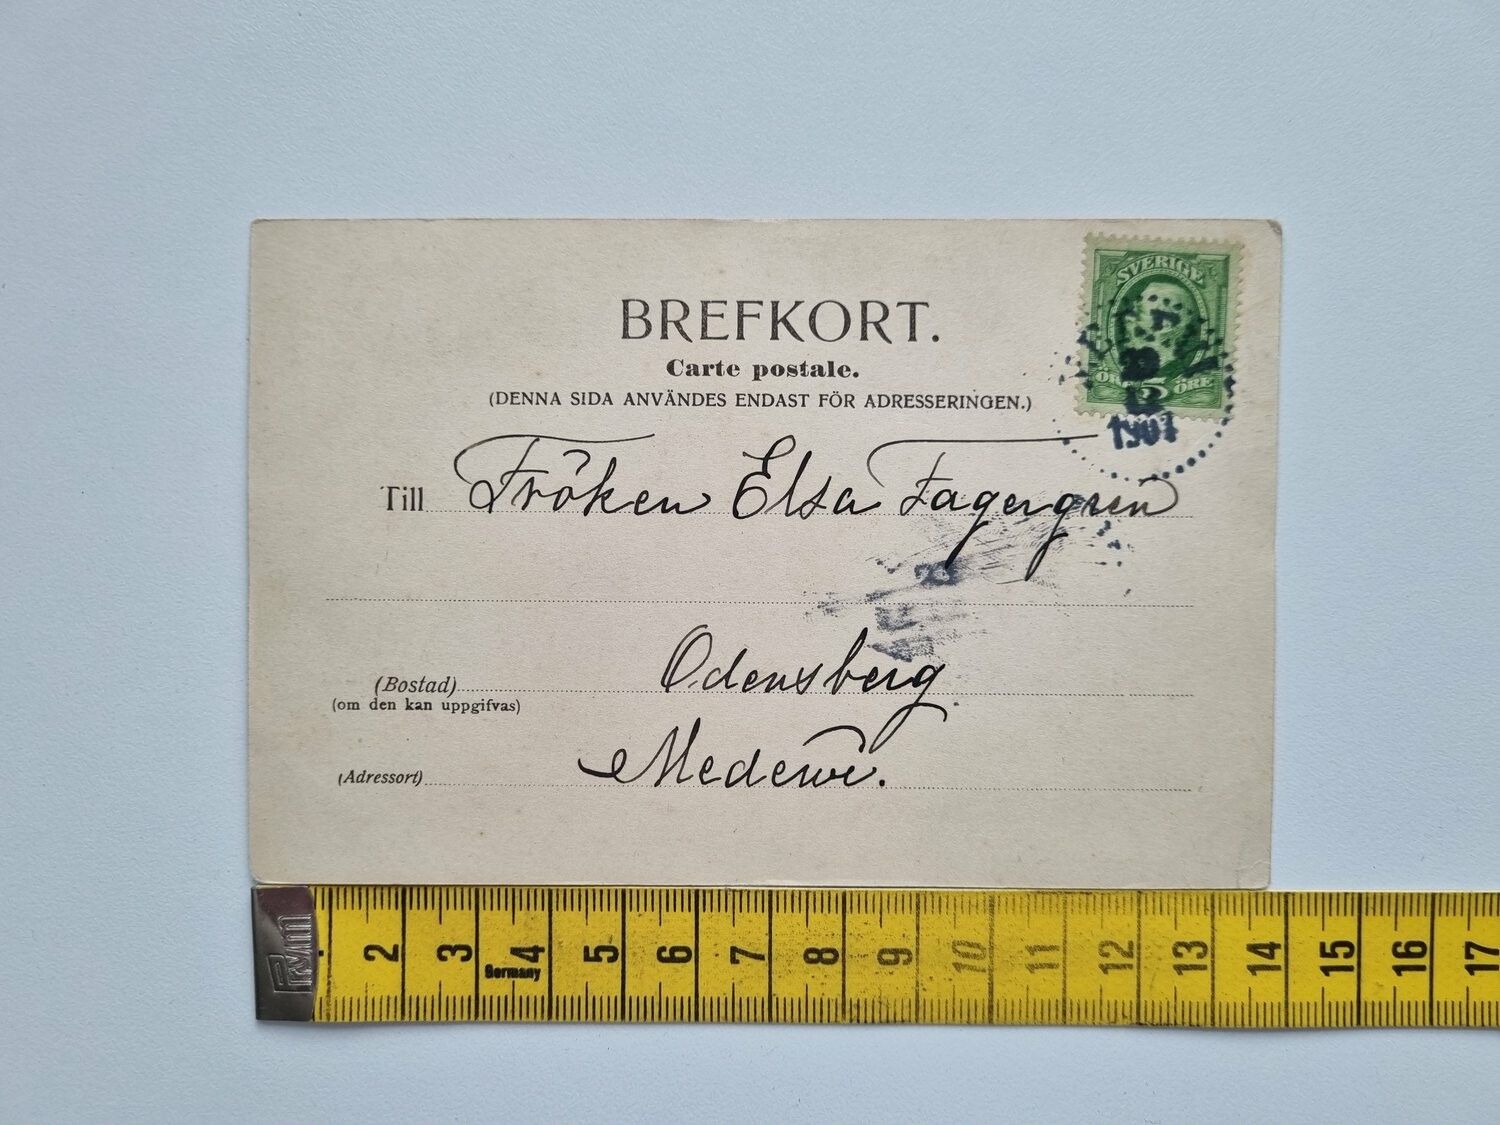 BREFKORT.
Carte postale.
(DENNA SIDA ANVÄNDES ENDAST FÖR ADRESSERINGEN.)
SVERIGE
ÖRE 5 ÖRE
1907
Till Fröken Elsa Fagergren
29
(Bostad) Odensberg
(om den kan uppgifvas)
(Adressort) Medewi.
Prym
2 3 4 5 6 7 8 9 10 11 12 13 14 15 16 17
Germany